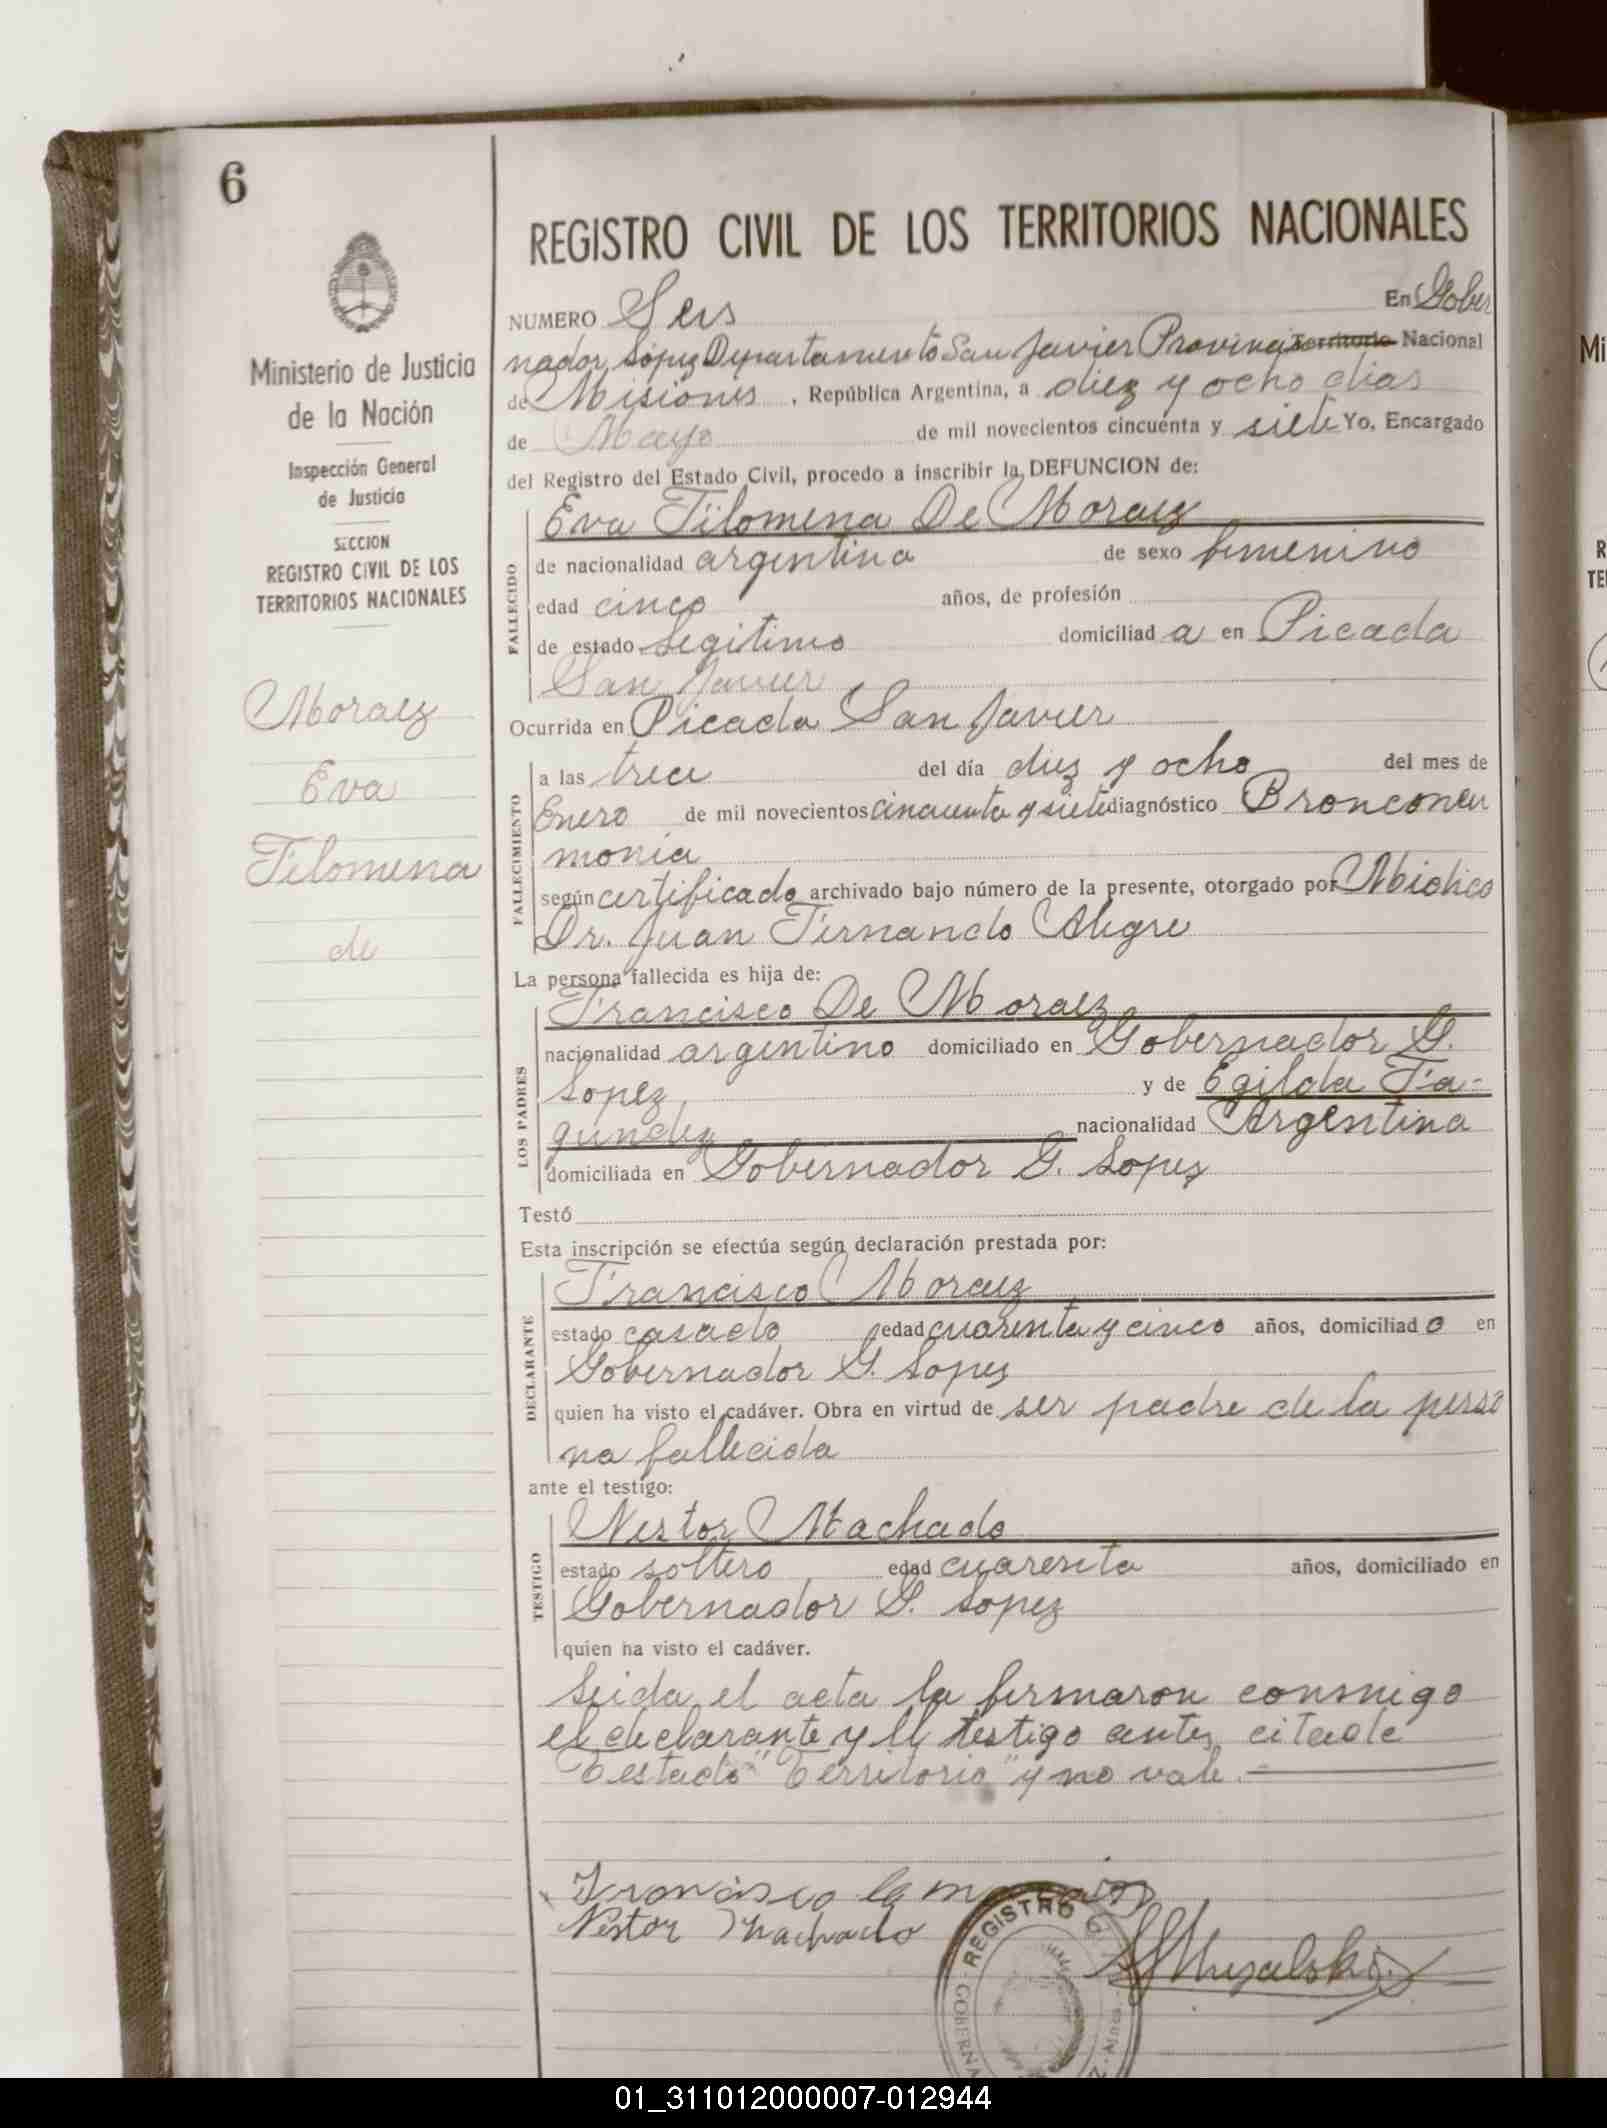 6
Ministerio de Justicia
de la Nación
Inspección General
de Justicia
SECCION
REGISTRO CIVIL DE LOS
TERRITORIOS NACIONALES
Moraez
Eva
Filomena
de
REGISTRO CIVIL DE LOS TERRITORIOS NACIONALES
NUMERO Seis En Gober
nador López Departamento San Javier Provincia Territorio Nacional
de Misiones, República Argentina, a diez y ocho dias
de Mayo de mil novecientos cincuenta y siete Yo, Encargado
del Registro del Estado Civil, procedo a inscribir la DEFUNCION de:
FALLECIDO
Eva Filomena De Moraez
de nacionalidad argentina de sexo femenino
edad cinco años, de profesión
de estado Legitimo domiciliad a en Picada
San Javier
Ocurrida en Picada San Javier
FALLECIMIENTO
a las trece del día diez y ocho del mes de
Enero de mil novecientos cincuenta y siete diagnóstico Bronconeu
monia
según certificado archivado bajo número de la presente, otorgado por Médico
Dr. Juan Fernando Alegre
La persona fallecida es hija de:
LOS PADRES
Francisco De Moraez
nacionalidad argentino domiciliado en Gobernador G.
Lopez y de Egilda Fa-
gundez nacionalidad Argentina
domiciliada en Gobernador G. Lopez
Testó
Esta inscripción se efectúa según declaración prestada por:
DECLARANTE
Francisco Moraez
estado casado edad cuarenta y cinco años, domiciliad o en
Gobernador G. Lopez
quien ha visto el cadáver. Obra en virtud de ser padre de la perso
na fallecida
ante el testigo:
TESTIGO
Nestor Machado
estado soltero edad cuarenta años, domiciliado en
Gobernador G. Lopez
quien ha visto el cadáver.
Leida el acta la firmaron conmigo
el declarante y el testigo antes citado
Testado "Territorio" y no vale.
Francisco
Nestor Machado
REGISTRO
GOBERNA
01_311012000007-012944